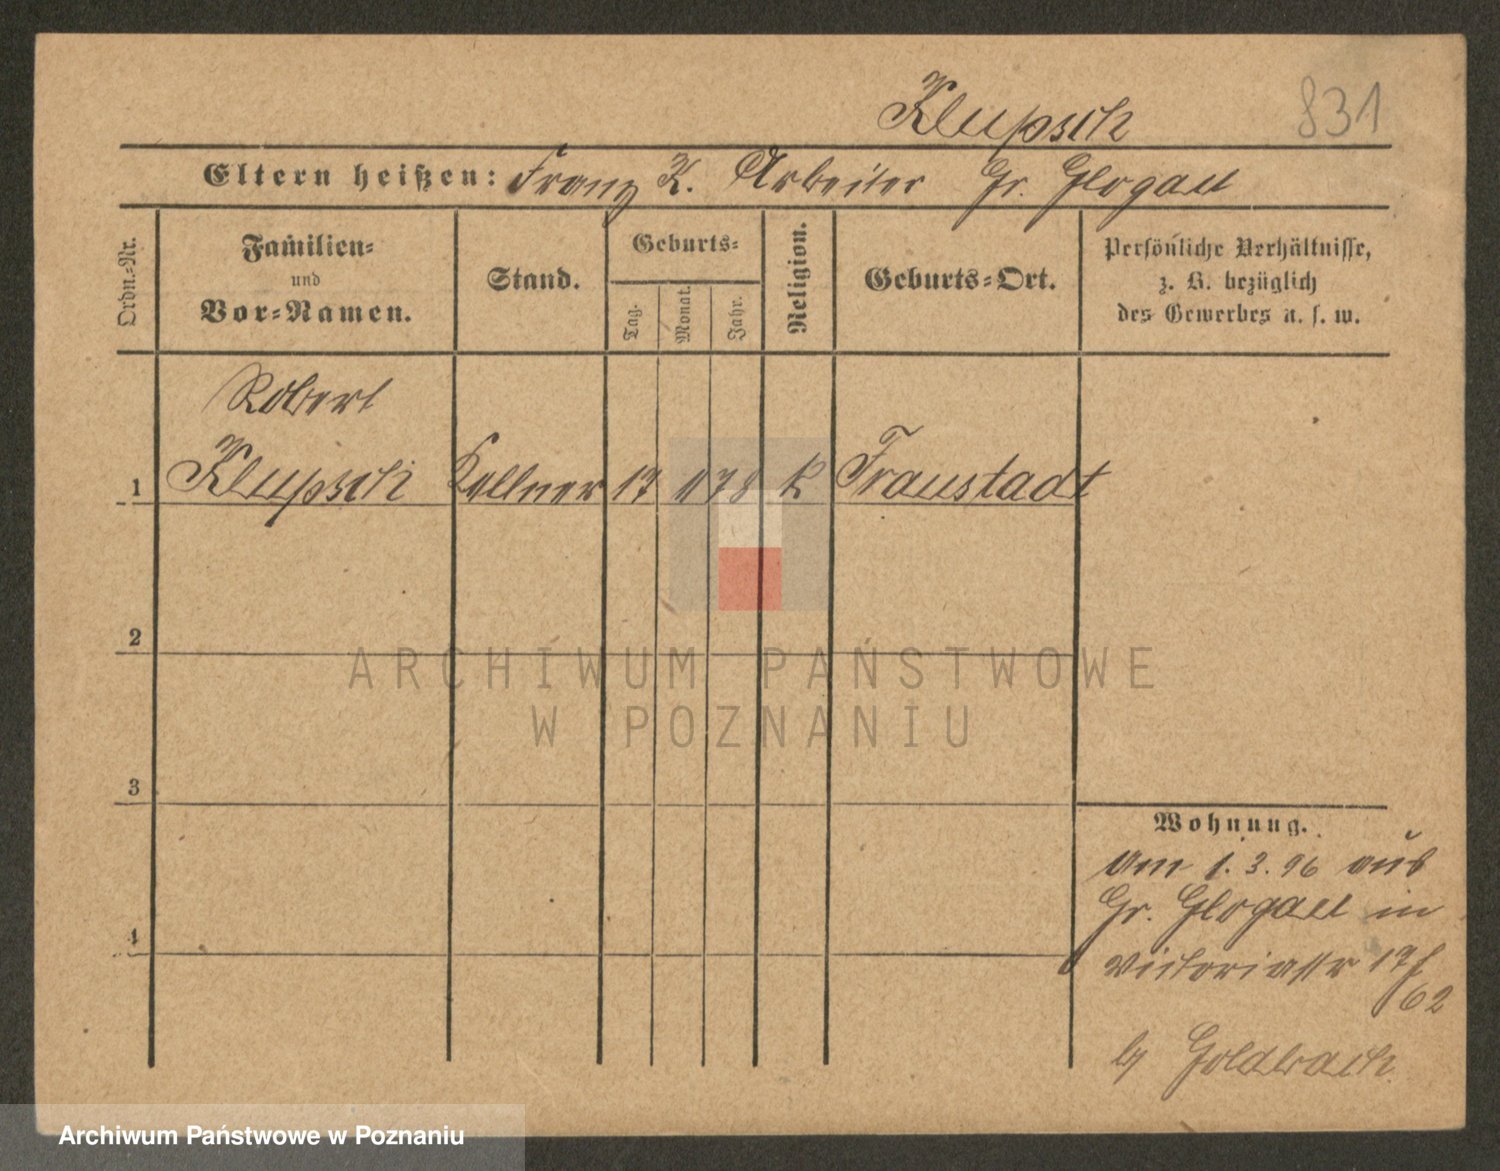 Klupsch 831
Eltern heißen: Franz K. Arbeiter Gr. Glogau
Ordn.-Nr.
Familien-
und
Vor-Namen.
Stand.
Geburts-
Tag.
Monat.
Jahr.
Religion.
Geburts-Ort.
Persönliche Verhältnisse,
z. B. bezüglich
des Gewerbes u. s. w.
Robert
1 Klupsch Kellner 17 78 K Fraustadt
2
ARCHIWUM PAŃSTWOWE
W POZNANIU
3
Wohnung.
Am 1. 3. 96 aus
Gr. Glogau in
Victoriastr 17/
62
4
by Goldbach
Archiwum Państwowe w Poznaniu